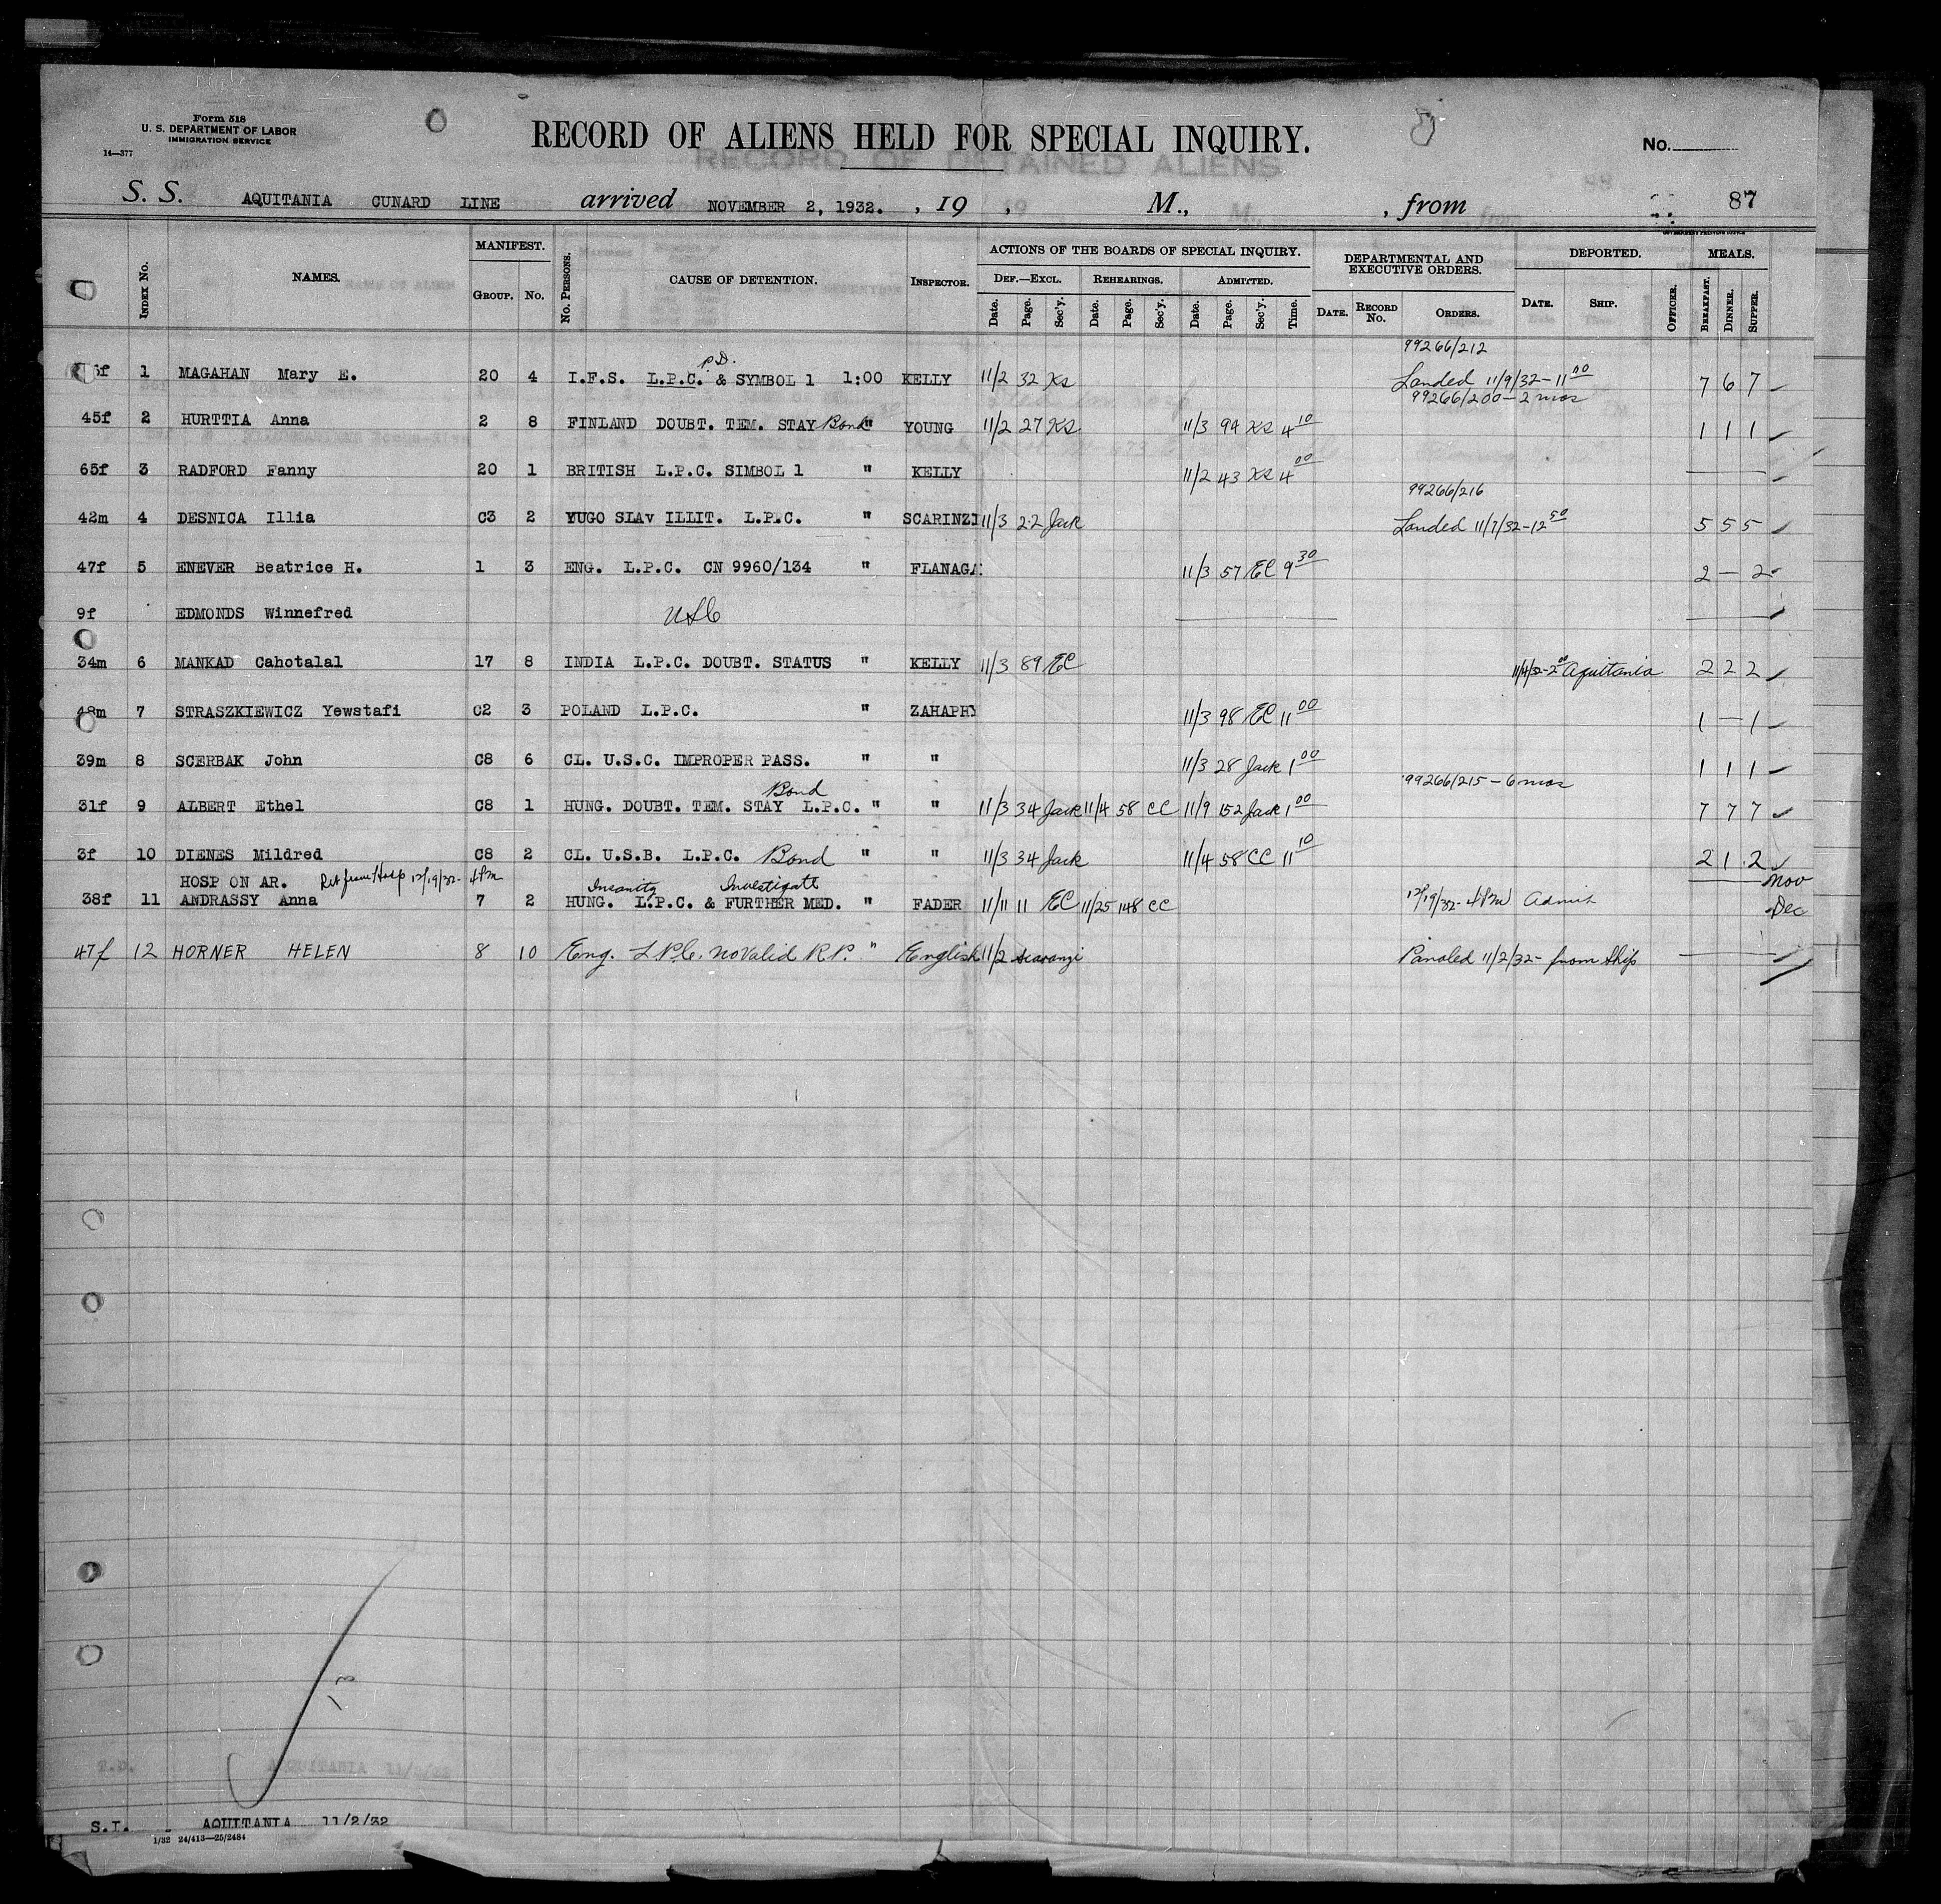 Form 518
U. S. DEPARTMENT OF LABOR
IMMIGRATION SERVICE
14—377
RECORD OF ALIENS HELD FOR SPECIAL INQUIRY.
RECORD OF DETAINED ALIENS
No.
S. S. AQUITANIA CUNARD LINE arrived NOVEMBER 2, 1932. , 19 , M., , from 87
GOVERNMENT PRINTING OFFICE
INDEX No. NAMES. MANIFEST. GROUP. No. No. PERSONS. CAUSE OF DETENTION. INSPECTOR. ACTIONS OF THE BOARDS OF SPECIAL INQUIRY. DEPARTMENTAL AND EXECUTIVE ORDERS. DEPORTED. MEALS.
DEF.—EXCL. REHEARINGS. ADMITTED.
Date. Page. Sec'y. Date. Page. Sec'y. Date. Page. Sec'y. Time. DATE. RECORD No. ORDERS. DATE. SHIP. OFFICER. BREAKFAST. DINNER. SUPPER.
P.D. 99266/212
1 MAGAHAN Mary E. 20 4 I.F.S. L.P.C. & SYMBOL 1 1:00 KELLY 11/2 32 KS Landed 11/9/32-11 00 7 6 7
99266/200-2 mos
45f 2 HURTTIA Anna 2 8 FINLAND DOUBT. TEM. STAY Bond " YOUNG 11/2 27 KS 11/3 94 KS 4 10 1 1 1
65f 3 RADFORD Fanny 20 1 BRITISH L.P.C. SIMBOL 1 " KELLY 11/2 43 KS 4 00
99266/216
42m 4 DESNICA Illia C3 2 YUGO SLAV ILLIT. L.P.C. " SCARINZI 11/3 22 Jack Landed 11/7/32-12 50 5 5 5
47f 5 ENEVER Beatrice H. 1 3 ENG. L.P.C. CN 9960/134 " FLANAGA 11/3 57 EC 9 30 2 — 2
9f EDMONDS Winnefred USC
34m 6 MANKAD Cahotalal 17 8 INDIA L.P.C. DOUBT. STATUS " KELLY 11/3 89 EC 11/4/32-2 00 Aquitania 2 2 2
48m 7 STRASZKIEWICZ Yewstafi C2 3 POLAND L.P.C. " ZAHAPHY 11/3 98 EC 11 00 1 — 1
39m 8 SCERBAK John C8 6 CL. U.S.C. IMPROPER PASS. " " 11/3 28 Jack 1 00 1 1 1
Bond 99266/215-6 mos
31f 9 ALBERT Ethel C8 1 HUNG. DOUBT. TEM. STAY L.P.C. " " 11/3 34 Jack 11/4 58 CC 11/9 152 Jack 1 00 7 7 7
3f 10 DIENES Mildred C8 2 CL. U.S.B. L.P.C. Bond " " 11/3 34 Jack 11/4 58 CC 11 10 2 1 2
HOSP ON AR. Ret from Hosp 12/19/32- 4 PM Insanity Investigate Nov
38f 11 ANDRASSY Anna 7 2 HUNG. L.P.C. & FURTHER MED. " FADER 11/11 11 EC 11/25 148 CC 12/19/32-4 PM Admit Dec
47f 12 HORNER HELEN 8 10 Eng. LPC. no valid R.P. " English 11/2 Paroled 11/2/32- from ship
13
S.I. AQUITANIA 11/2/32
1/32 24/413—25/2484